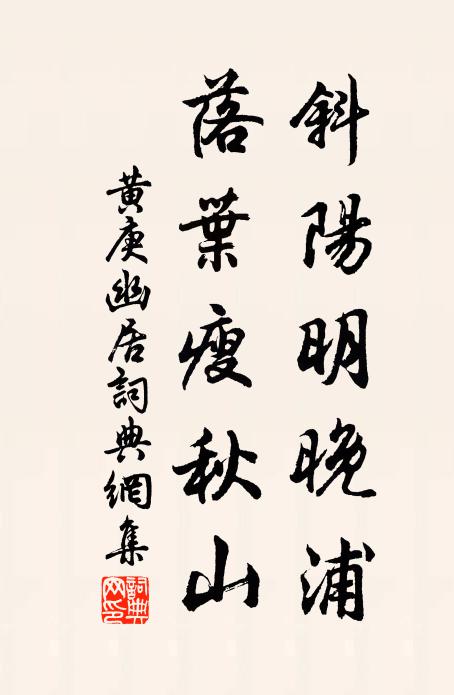 斜陽明晚浦
落葉瘦秋山
黃庚幽居詞典網集
詞典网印